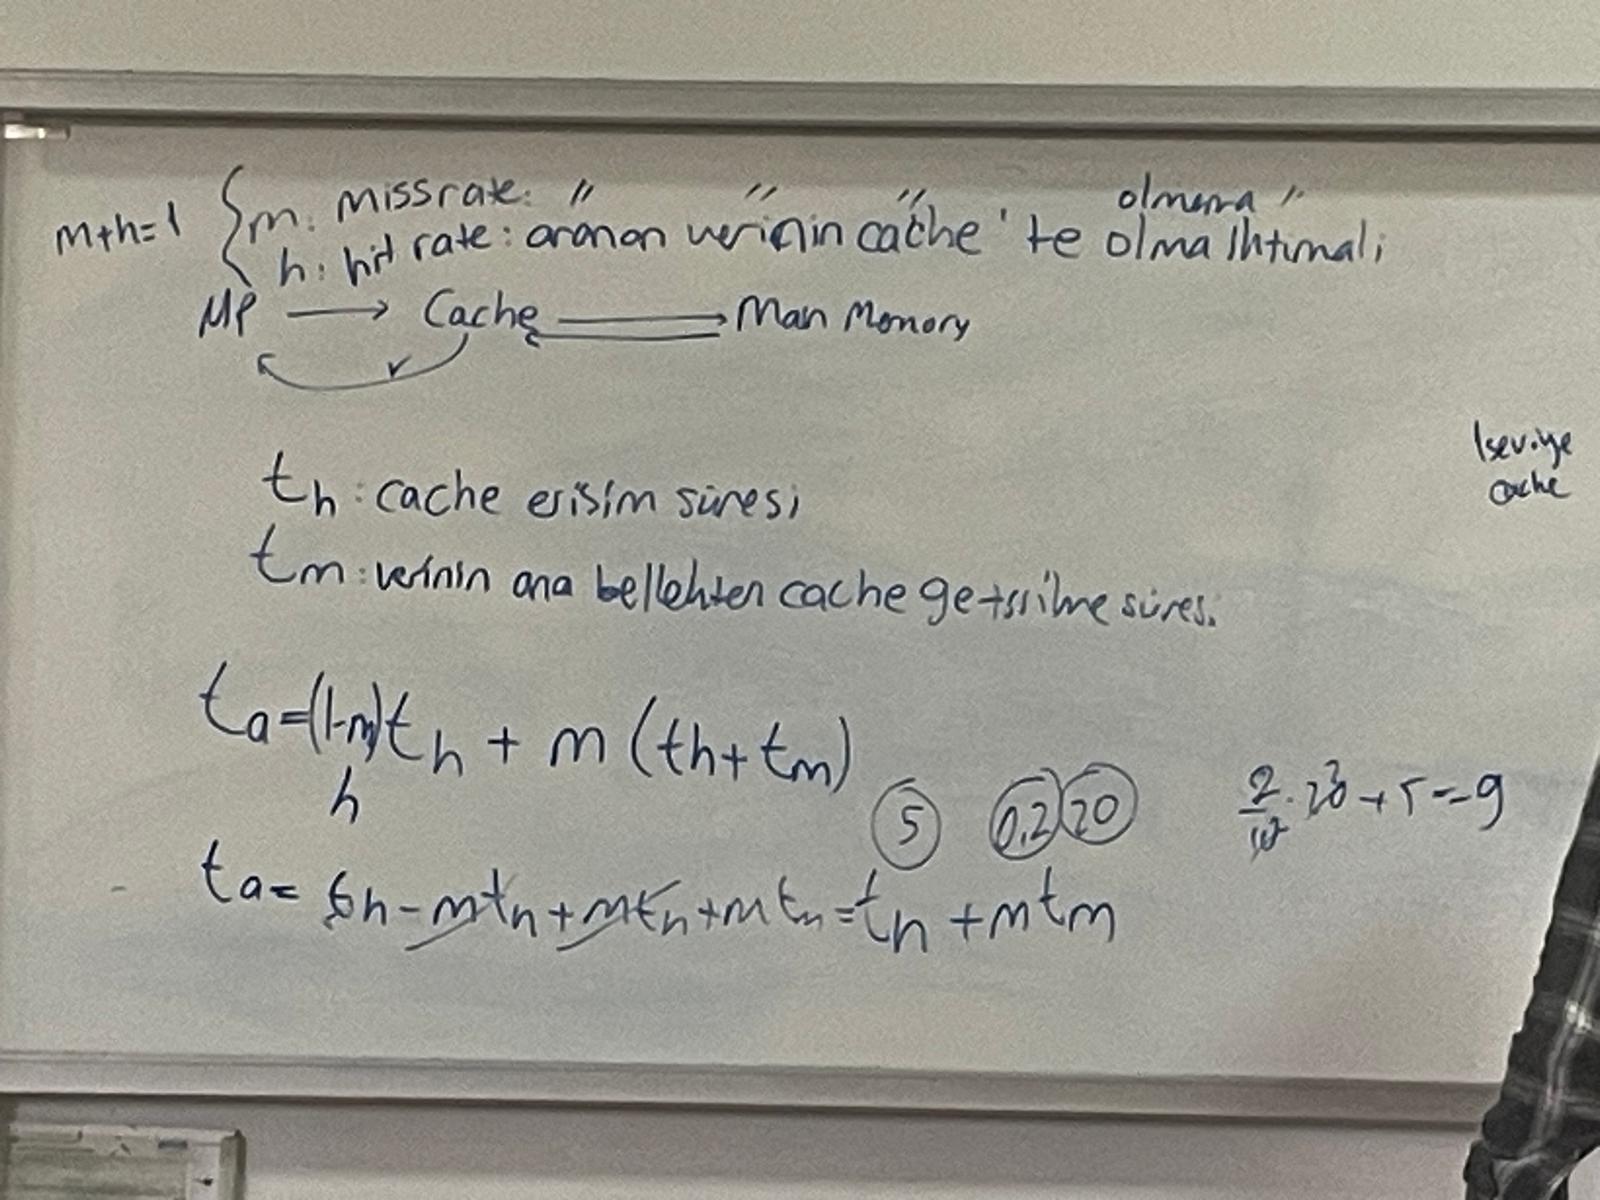 m+h=1 { m: missrate: " " " olmama "
h: hit rate: aranan verinin cache'te olma ihtimali
MP → Cache ⇄ Main Memory
✓
1 seviye
cache
th : cache erisim süresi
tm : verinin ana bellekten cache getirilme süresi
ta=(1-m)th + m (th+tm)
h
5 0,2 20
2/10 . 20 + 5 = 9
ta= th - mth + mth + mtm = th + mtm